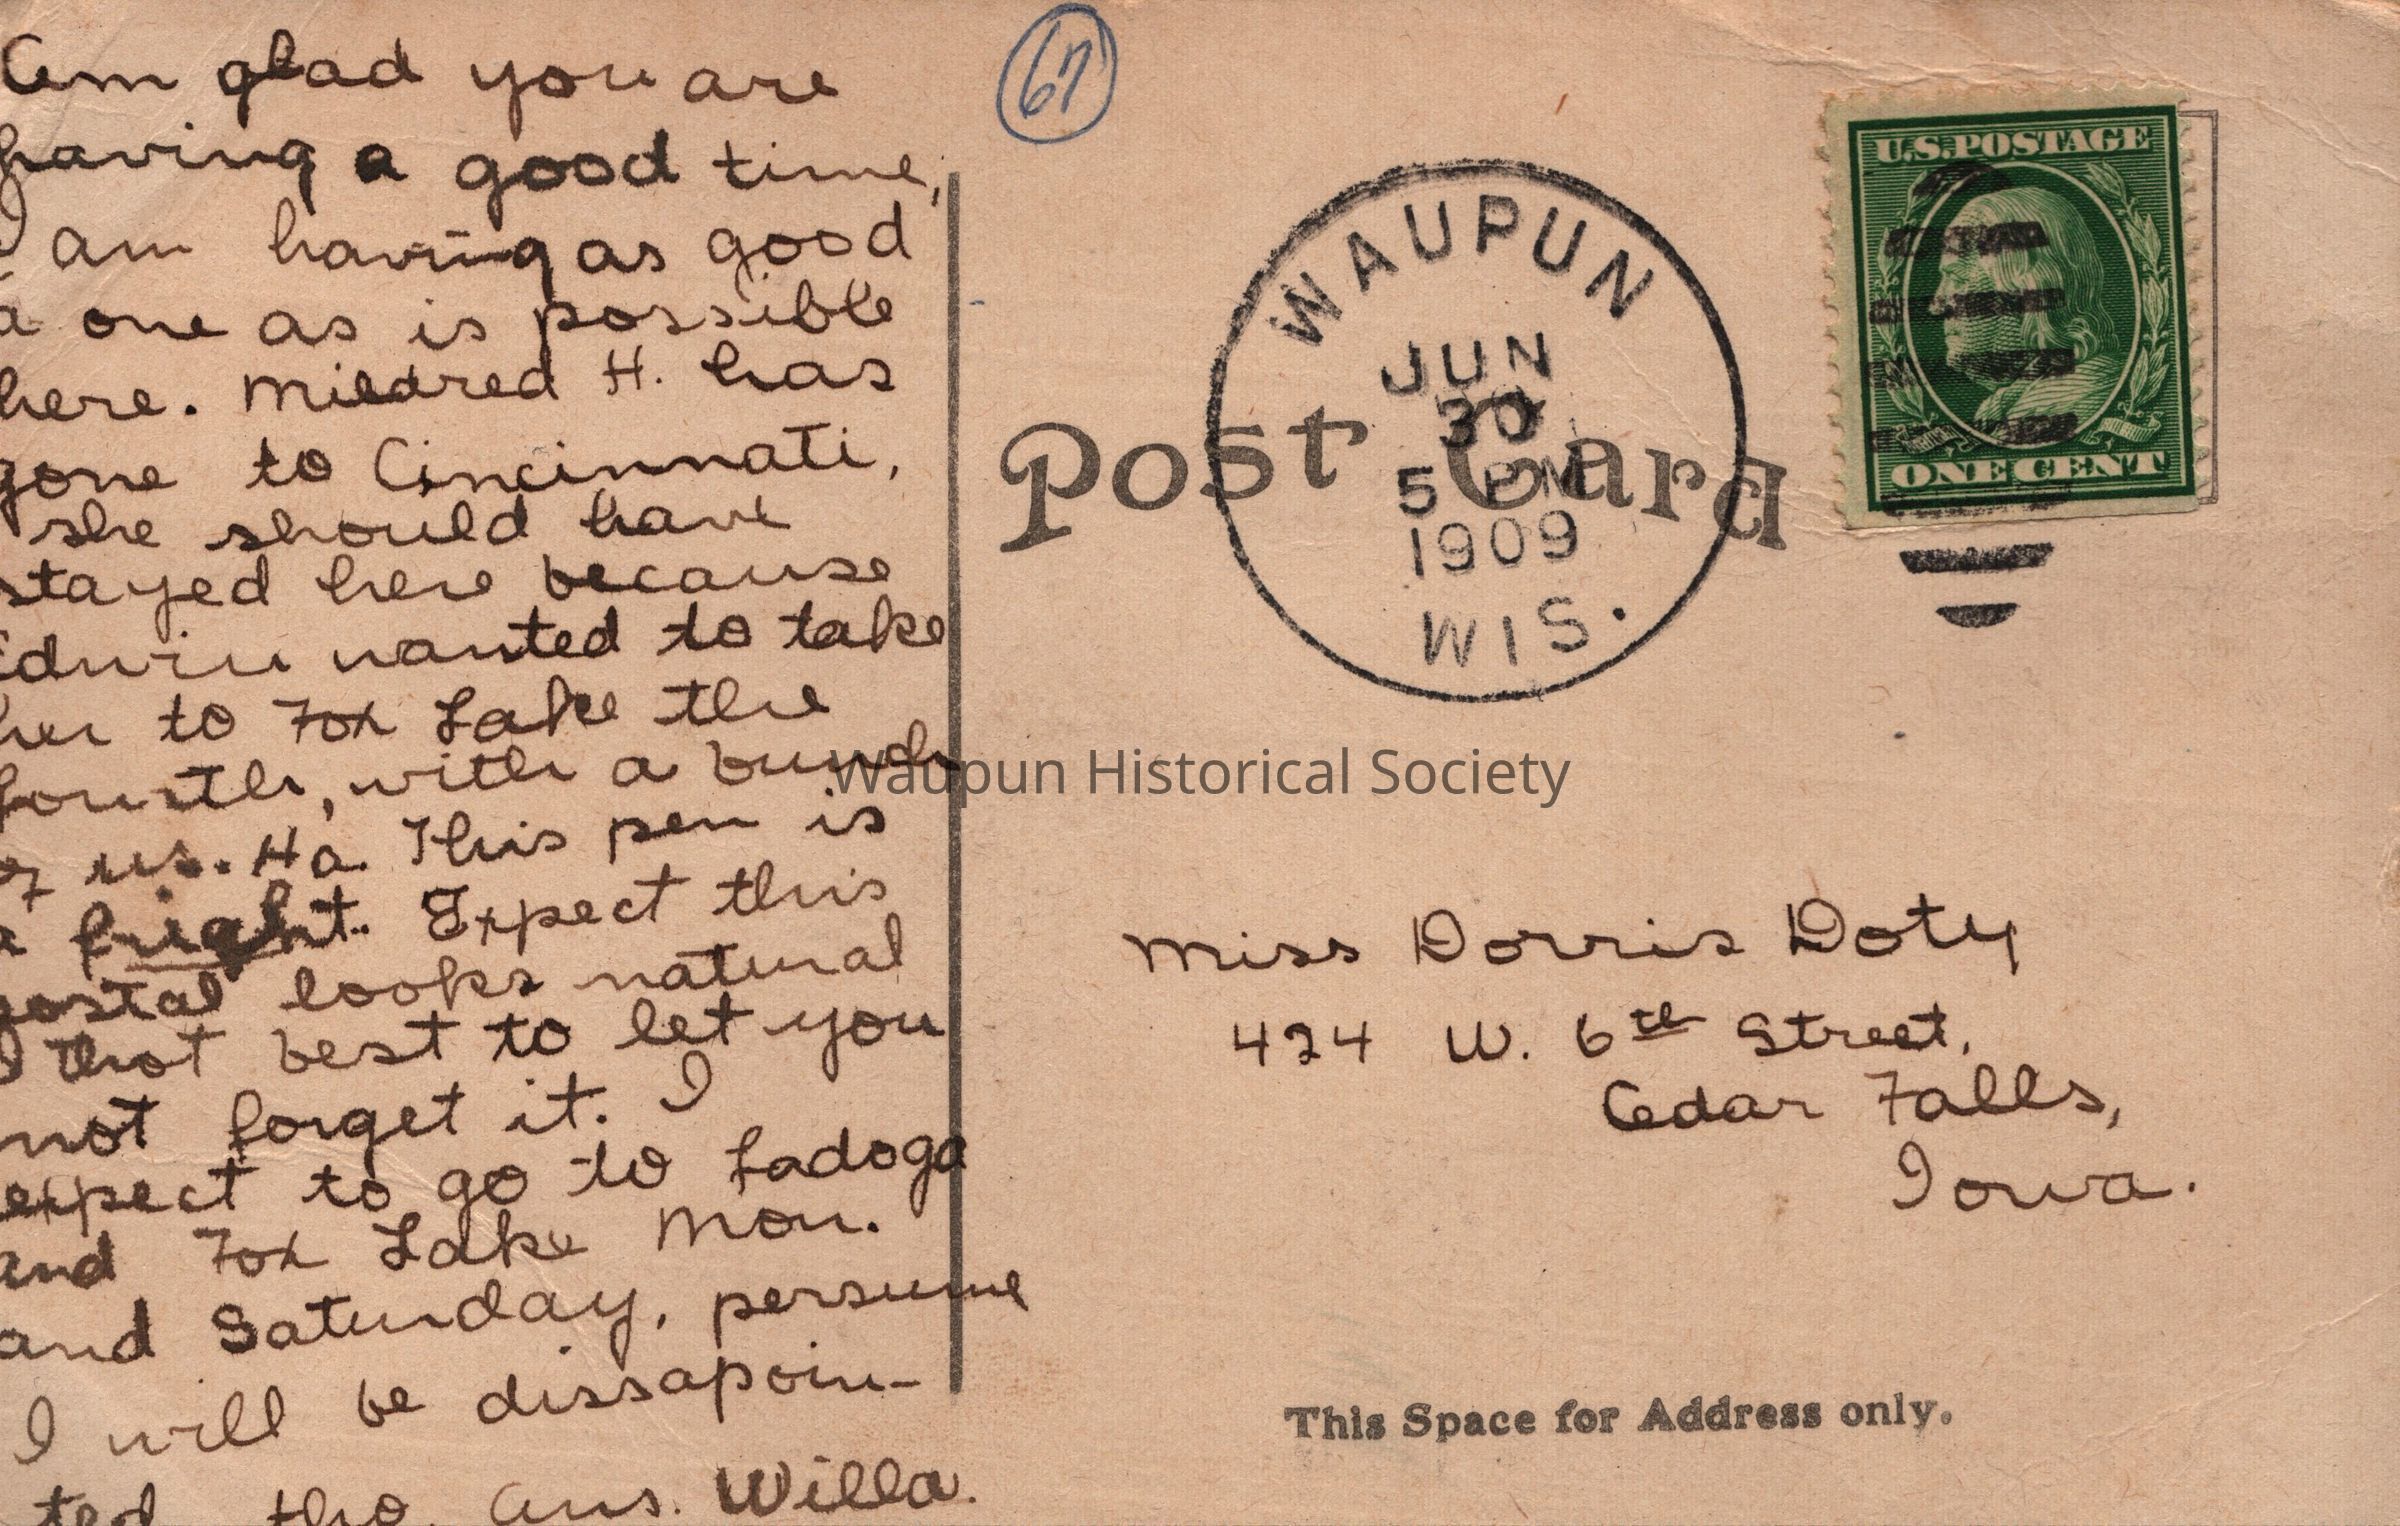 Am glad you are
having a good time,
I am having as good
a one as is possible
here. Mildred H. has
gone to Cincinnati,
she should have
stayed here because
Edwin wanted to take
her to Fox Lake the
fourth, with a bunch
of us. Ha. This pen is
a fright. Expect this
postal looks natural
that best to let you
not forget it. I
expect to go to Ladoga
and Fox Lake Mon.
and Saturday, persume
I will be dissapoin-
ted tho. Ans. Willa.
67
U.S. POSTAGE
ONE CENT
WAUPUN
JUN
30
5 PM
1909
WIS.
Post Card
Waupun Historical Society
Miss Dorris Doty
424 W. 6th Street,
Cedar Falls,
Iowa.
This Space for Address only.